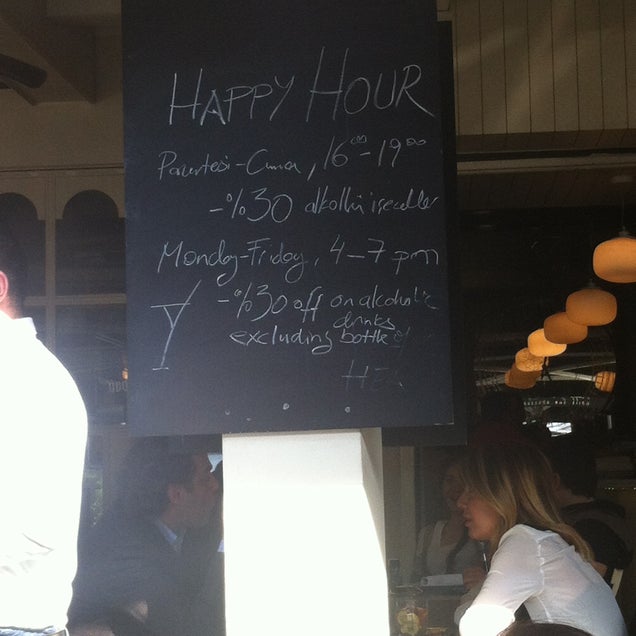 HAPPY HOUR
Pazartesi-Cuma, 16⁰⁰-19⁰⁰
-%30 alkollü içecekler
Monday-Friday, 4-7 pm
-%30 off on alcoholic
drinks
excluding bottle